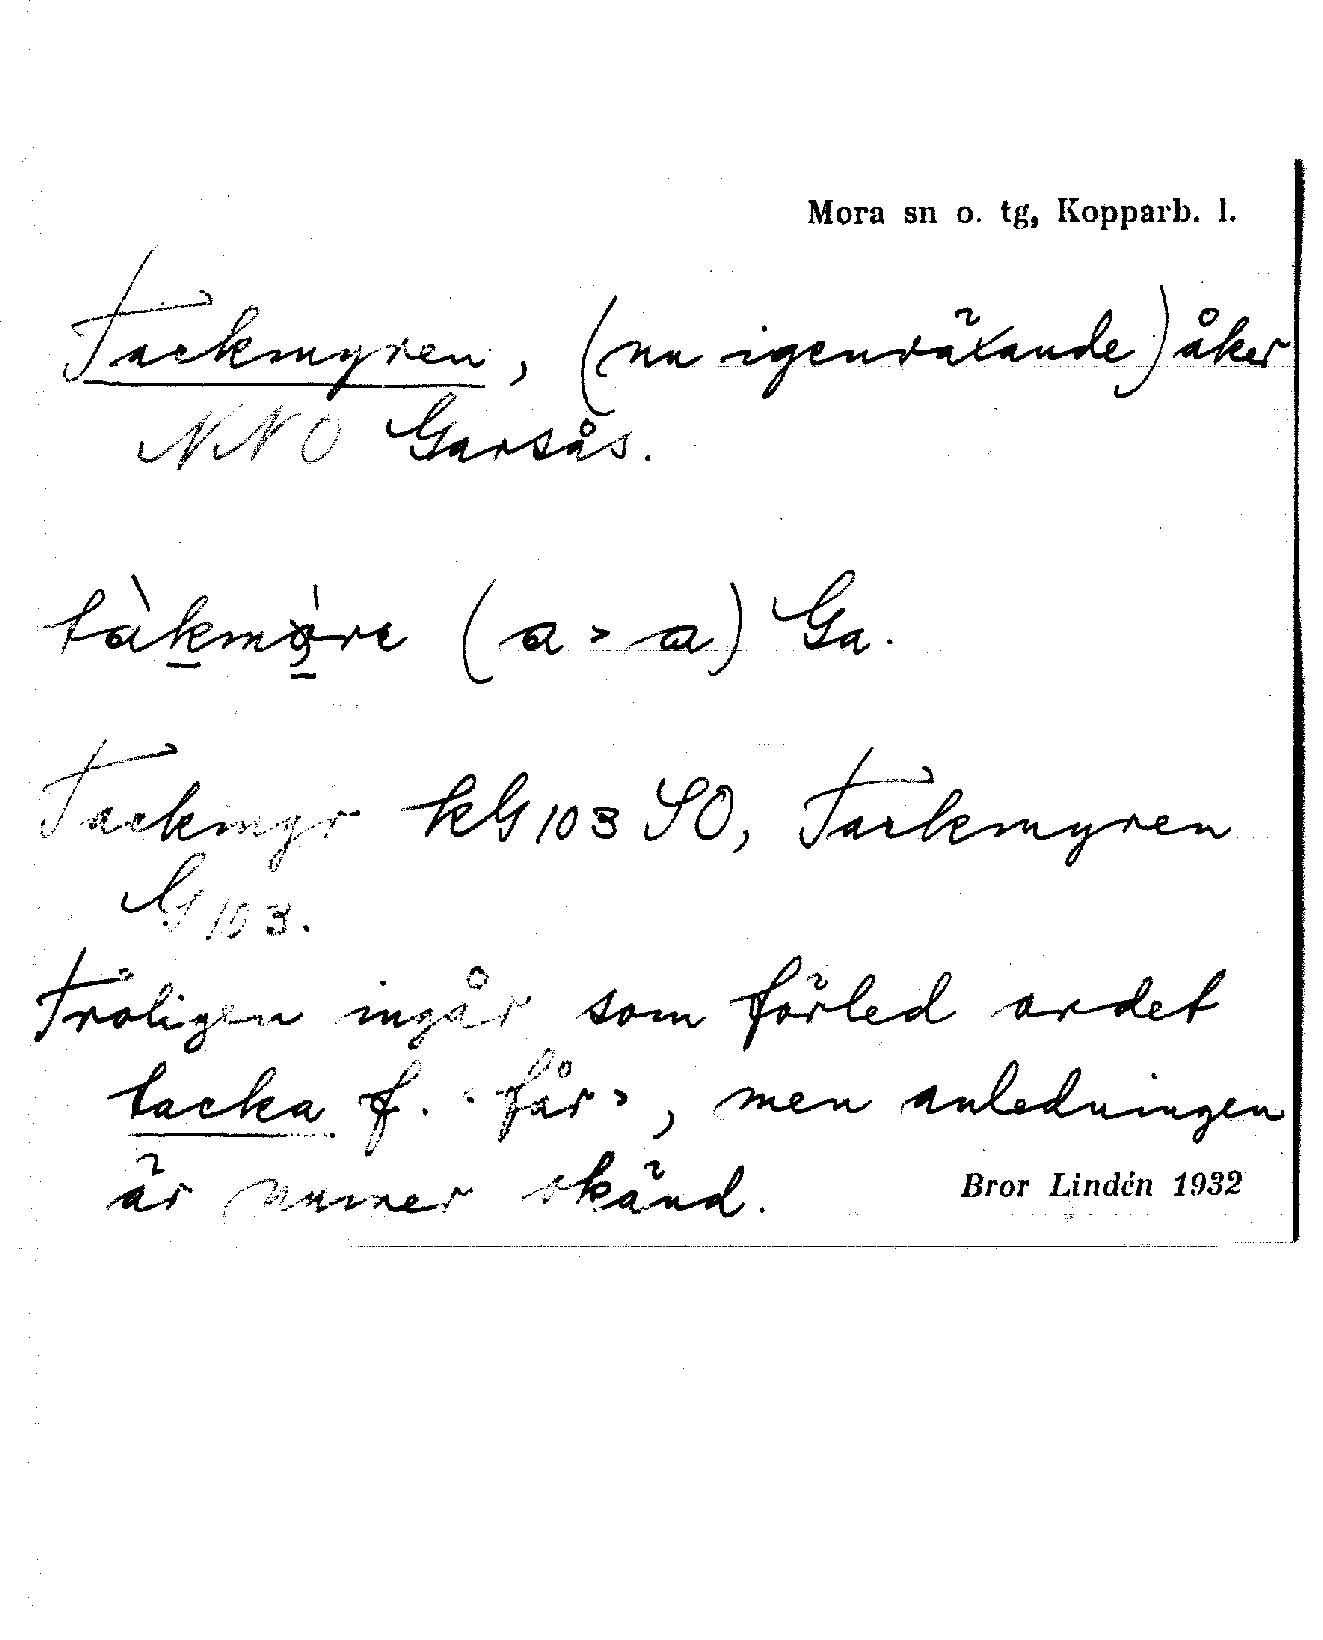 Mora sn o. tg, Kopparb. l.
Tackmyren, (nu igenväxande) åker
NNO Garsås.
(a > a) Ga.
Tackmyr kG103 SO, Tackmyren
G103.
Troligen ingår som förled ordet
tacka f. 'får', men anledningen
är numer okänd.
Bror Lindén 1932